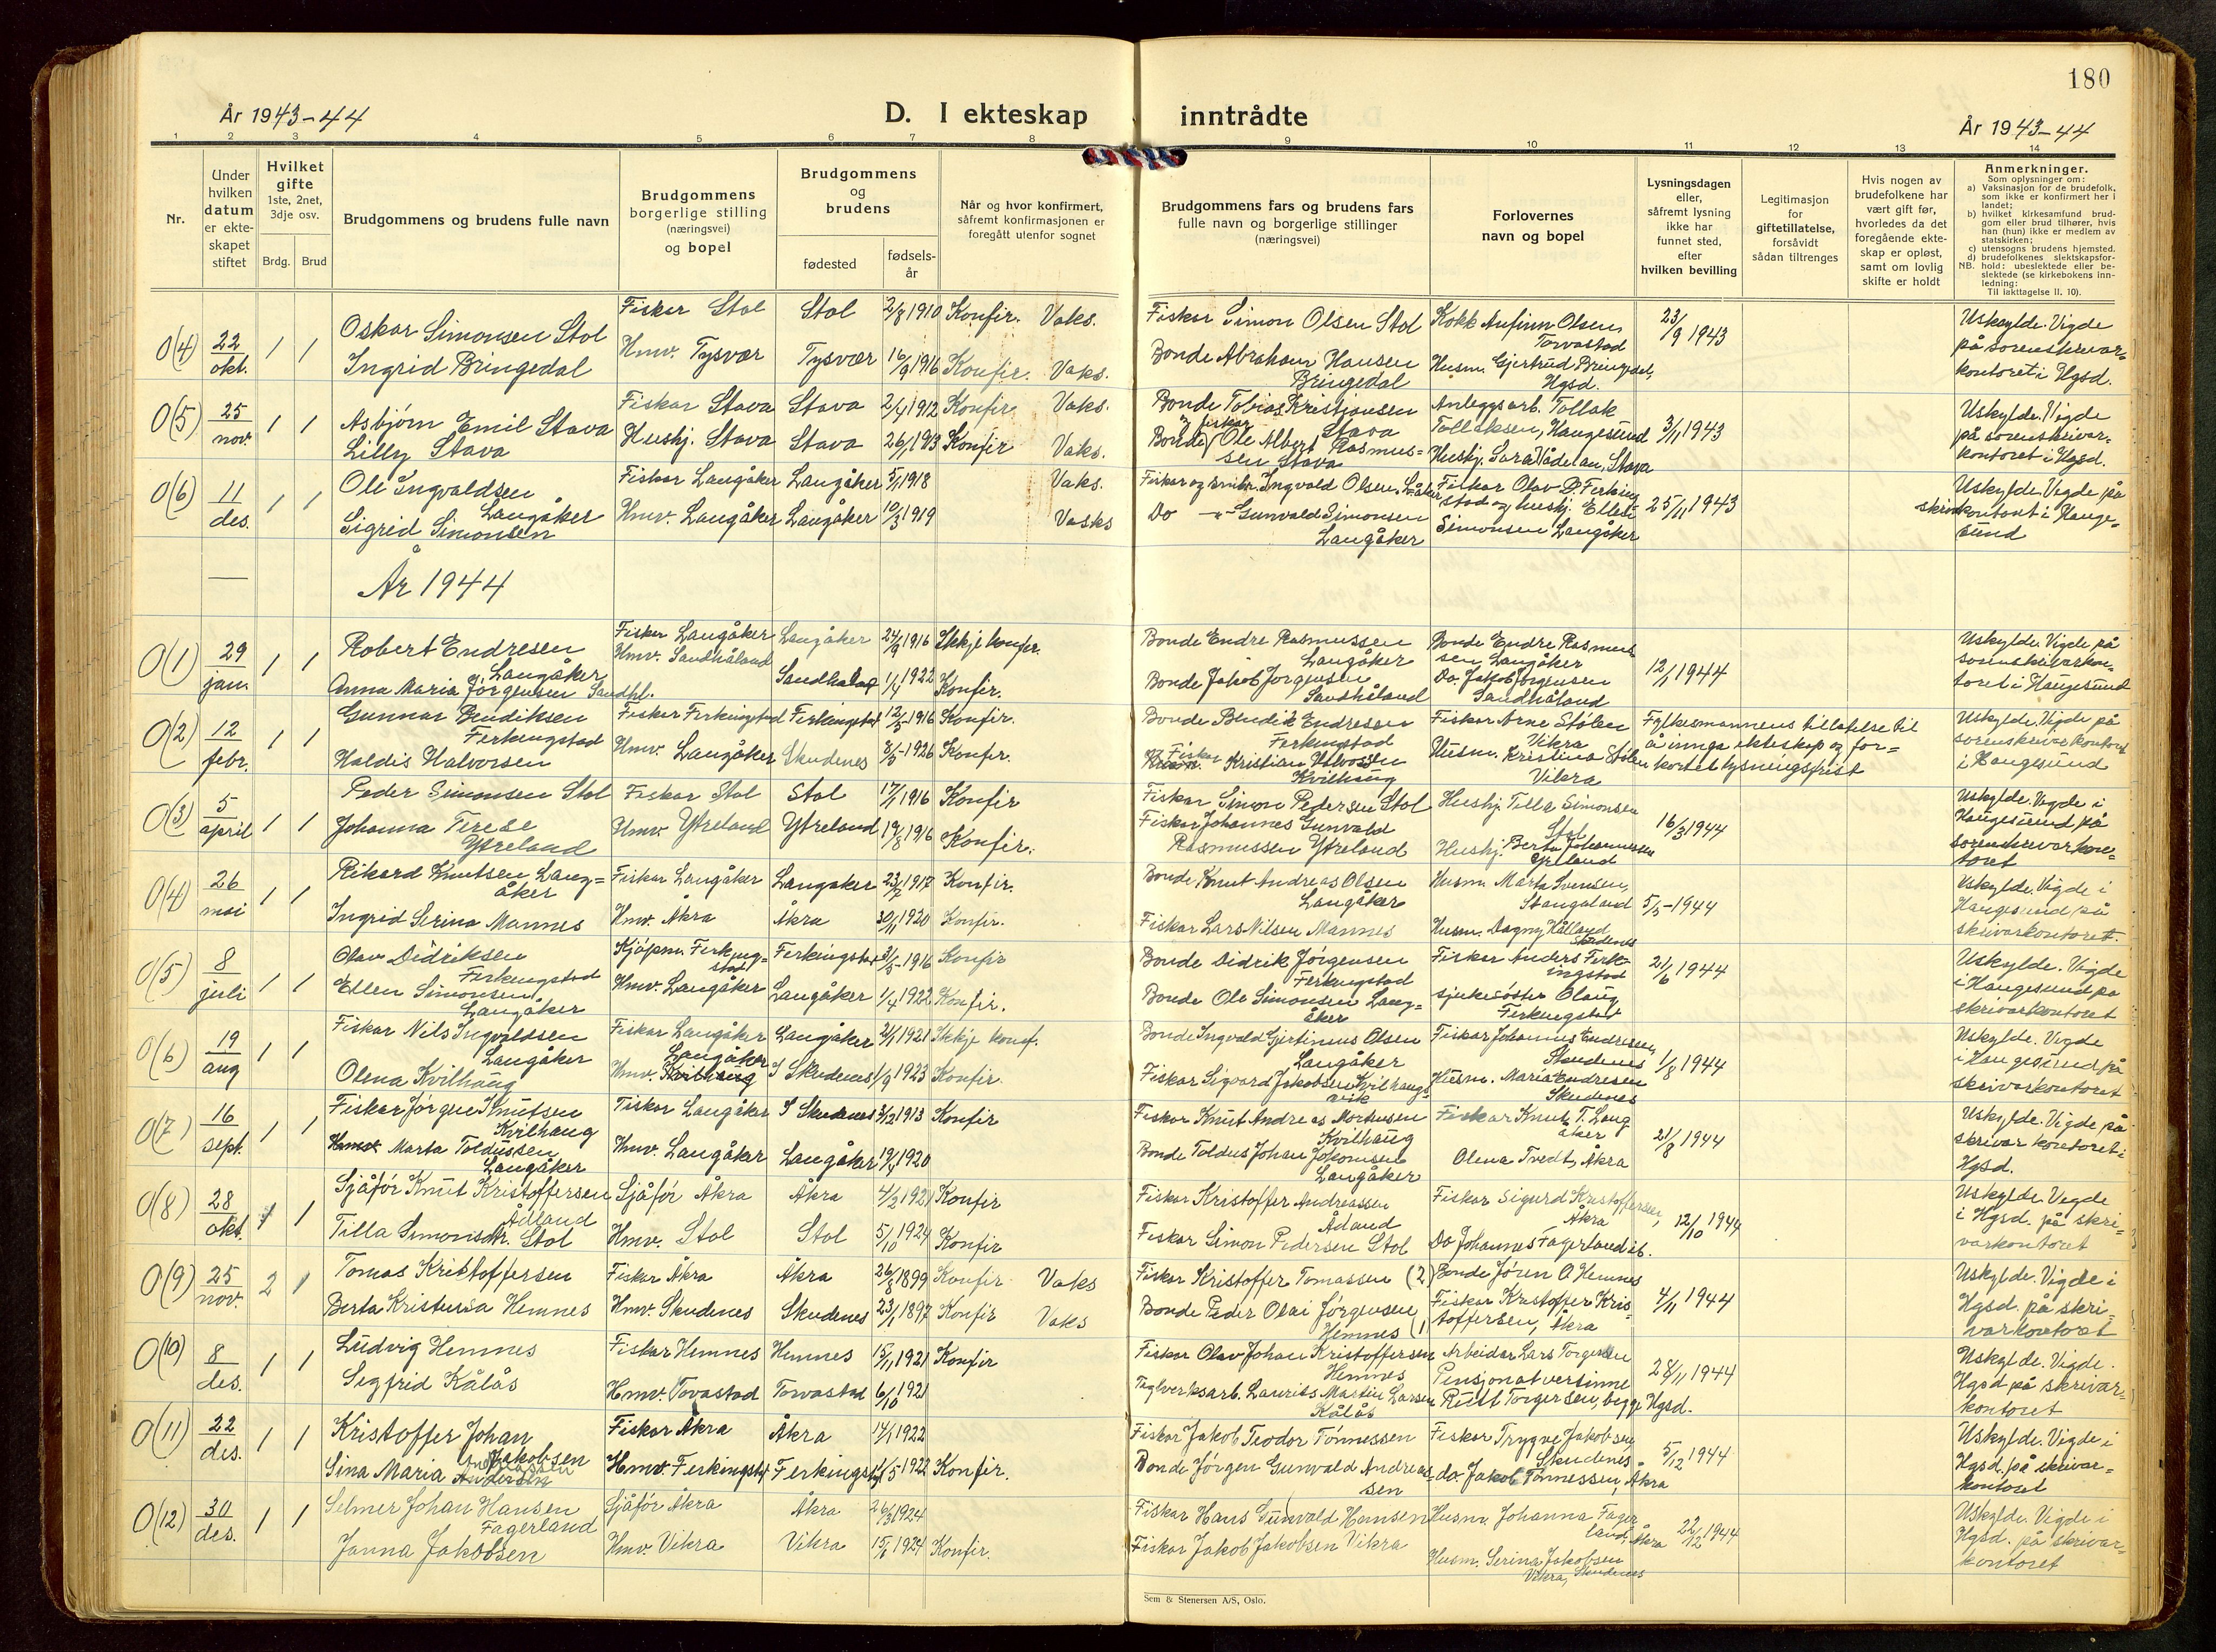 180
År 1943-44
D. I ekteskap inntrådte
År 1943-44
1 2 3 4 5 6 7 8 9 10 11 12 13 14
Nr.
Under hvilken datum er ekte-skapet stiftet
Hvilket gifte
1ste, 2net, 3dje osv.
Brdg. Brud
Brudgommens og brudens fulle navn
Brudgommens borgerlige stilling (næringsvei) og bopel
Brudgommens og brudens
fødested
fødsels-år
Når og hvor konfirmert, såfremt konfirmasjonen er foregått utenfor sognet
Brudgommens fars og brudens fars fulle navn og borgerlige stillinger (næringsvei)
Forlovernes navn og bopel
Lysningsdagen eller, såfremt lysning ikke har funnet sted, efter hvilken bevilling
Legitimasjon for giftetillatelse, forsåvidt sådan tiltrenges
Hvis nogen av brudefolkene har vært gift før, hvorledes da det foregående ekte-skap er opløst, samt om lovlig skifte er holdt
Anmerkninger.
Som oplysninger om:
a) Vaksinasjon for de brudefolk, som ikke er konfirmert her i landet;
b) hvilket kirkesamfund brud-gom eller brud tilhører, hvis han (hun) ikke er medlem av statskirken;
c) utensogns brudens hjemsted.
d) brudefolkenes slektskapsfor-hold: ubeslektede eller be-slektede (se kirkebokens inn-ledning:
NB.
Til iakttagelse II. 10).
0(4) 22 okt. 1 1 Oskar Simonsen Stol Fisker Stol Stol 2/8 1910 Konfir. Vaks. Fisker Simon Olsen Stol Kokk Anfinn Olsen, Torvastad 23/9 1943 Uskylde. Vigde på sorenskrivar-kontoret i Hgsd.
Ingrid Bringedal Hmv. Tysvær Tysvær 16/9 1916 Konfir. Vaks. Bonde Abraham Hansen Bringedal Husm. Gjertrud Bringedal, Hgsd.
0(5) 25 nov. 1 1 Asbjørn Emil Stava Fiskar Stava Stava 2/4 1912 Konfir. Vaks. Bonde Tobias Kristiansen Stava Anleggsarb. Tollak Tollaksen, Haugesund 3/11 1943 Uskylde. Vigde på sorenskrivar-kontoret i Hgsd.
Lilly Stava Hushj. Stava Stava 26/1 1913 Konfir Vaks. Bonde og fiskar Ole Albert Rasmus-sen Stava Hushj. Sara Ådelan, Stava
0(6) 11 des. 1 1 Ole Ingvaldsen Langåker Fiskar Langåker Langåker 5/1 1918 Vaks. Fiskar og småbr. Ingvald Olsen, Langåker Fiskar Olav D. Ferking-stad og hushj. Ellen Simonsen Langåker 25/11 1943 Uskylde. Vigde på skrivarkontoret i Hauge-sund
Sigrid Simonsen Hmv. Langåker Langåker 10/3 1919 Vasks Do -"- Gunvald Simonsen Langåker
År 1944
0(1) 29 jan. 1 1 Robert Endresen Langåker Fisker Langåker Langåker 24/9 1916 Ikkje konfir. Bonde Endre Rasmussen Langåker Bonde Endre Rasmus-sen Langåker 12/1 1944 Uskylde. Vigde på sorenskrivarkon-toret i Haugesund
Anna Maria Jörgensen Sandhl. Hmv. Sandhåland Sandhåland 1/4 1922 Konfir. Bonde Jakob Jorgensen Sandhåland Do. Jakob Jorgensen Sandhåland
0(2) 12 febr. 1 1 Gunnar Bendiksen Ferkingstad Fiskar Ferkingstad Ferkingstad 12/5-1916 Konfir. Bonde Bendik Endressen Ferkingstad Fiskar Arne Stölen Vikra Fylkesmannens tillatelse til å innga ekteskap og for-kortet lysningsfrist Uskylde. Vigde på sorenskrivarkontoret i Haugesund
Haldis Halvorsen Hmv. Langåker Skudenes 8/3-1926 Konfir. Fiskar Kristian Halvorsen Kvilhaug Husm. Kristina Stölen Vikra
0(3) 5 april 1 1 Peder Simonsen Stol Fiskar Stol Stol 17/1 1916 Konfir Fiskar Simon Pedersen Stol Hushj. Tilla Simonsen Stol 16/3 1944 Uskylde. Vigde i Haugesund på sorenskrivarkon-toret
Johanna Terese Ytreland Hmv. Ytreland Ytreland 19/8 1916 Konfir. Fiskar Johannes Gunvald Rasmussen Ytreland Hushj. Berta Johannessen Ytreland
0(4) 26 mai 1 1 Rikard Knutsen Lang-åker Fiskar Langåker Langaker 23/7 1917 Konfir. Bonde Knut Andreas Olsen Langåker Husm. Marta Svensen, Stangaland 5/5-1944 Uskylde. Vigde i Haugesund på skrivarkontoret.
Ingrid Serina Mannes Hmv. Åkra Åkra 30/11 1920 Konfir. Fiskar Lars Nilsen Mannes Husm. Dagny Hålland Skudenes
0(5) 8 juli 1 1 Olav Didriksen Ferkingstad Kjöpm. Ferking-stad Ferkingstad 31/5-1916 Konfir Bonde Didrik Jörgensen Ferkingstad Fiskar Anders Ferk-ingstad 21/6 1944 Uskylde. Vigde i Haugesund på skrivarkontoret
Ellen Simonsen Langåker Hmv. Langåker Langåker 1/4 1922 Konfir. Bonde Ole Simonsen Lang-åker Sjukesöster Olaug Ferkingstad
0(6) 19 aug 1 1 Fiskar Nils Ingvaldsen Langåker Fiskar Langåker Langåker 21/1 1921 Ikkje konf. Bonde Ingvald Gjertinius Olsen Langåker Fiskar Johannes Endresen, Skudenes 1/8 1944 Uskylde. Vigde i Haugesund på skrivarkontoret
Olena Kvilhaug Hmv. Kvilhaug Langåker I Skudenes 1/9 1923 Konfir. Fiskar Sigvard Jakobsen Kvilhaugs-vik Husm. Maria Endresen Skudenes
0(7) 16 sept. 1 1 Fiskar Jörgen Knutsen Kvilhaug Fiskar Langåker I Skudenes 31/12 1913 Konfir Fiskar Knut Andreas Mortensen Kvilhaug Fiskar Knut T. Lang åker 21/8 1944 Uskylde. Vigde på skrivarkontoret i Hgsd.
Hmv. Marta Toldussen Langåker Hmv. Langåker Langåker 19/4 1920 Bonde Toldus Johan Jakobsen Langåker Olena Tvedt, Akra
0(8) 28 okt. 1 1 Sjåför Knut Kristoffersen Ådland Sjåför Åkra Åkra 4/2 1921 Konfir Fiskar Kristoffer Andreassen Ådland Fiskar Sigurd Kristoffersen, Åkra 12/10 1944 Uskylde. Vigde i Hgsd. på skri-varkontoret
Tilla Simonsdtr. Stol Hmv. Stol Stol 5/10 1924 Konfir Fiskar Simon Pedersen Stol Do Johannes Fagerland ib.
0(9) 25 nov. 2 1 Tomas Kristoffersen Fiskar Åkra Åkra 26/8 1899 Konfir Vaks Fiskar Kristoffer Tomassen (2) Bonde Jören O. Hemnes 4/11 1944 Uskylde. Vigde i Hgsd. på skri-varkontoret
Berta Kristuvia Hemnes Hmv. Skudenes Skudenes 23/1 1897 Konfir Vaks Bonde Peder Olai Jörgensen Hemnes (1) Fiskar Kristoffer Kris-toffersen, Åkra
0(10) 8 des. 1 1 Ludvig Hemnes Fiskar Hemnes Hemnes 15/11 1921 Konfir Fiskar Olav Johan Kristoffersen Hemnes Arbeidar Lars Torgersen 28/11 1944 Uskylde. Vigde. Hgsd på skrivar-kontoret
Segfrid Kålås Hmv. Tovastad Torvastad 6/10 1921 Taglverksarb. Laurits Martin Larsen Kålås Pensjonatvertinne Rutt Torgersen, begge Hgsd.
0(11) 22 des. 1 1 Kristoffer Johan Jakobsen Fiskar Åkra Åkra 14/1 1922 Fiskar Jakob Teodor Tönnessen Fiskar Trygve Jakobsen, Skudenes 5/12 1944 Uskylde. Vigde i Hgsd. på skrivar-kontoret
Sina Maria Andreassen Hmv. Ferkingstad Ferkingstad 1922 Konfir. Bonde Jörgen Gunvald Andreas-sen do. Jakob Tönnessen, Åkra
0(12) 30 des. 1 1 Selmer Johan Hansen Fagerland Sjåför Åkra Åkra 26/3 1924 Fiskar Hans Gunvold Hansen Husm. Johanna Fager land, Åkra 22/12 1944 Uskylde. Vigde i Hgsd. på skrivar-kontoret
Janna Jakobsen Hmv. Vikra Vikra 15/1 1924 Konfir. Fiskar Jakob Jakobsen Vikra Husm. Serina Jakobsen Vikra, Skudenes
Sem & Stenersen A/S, Oslo.